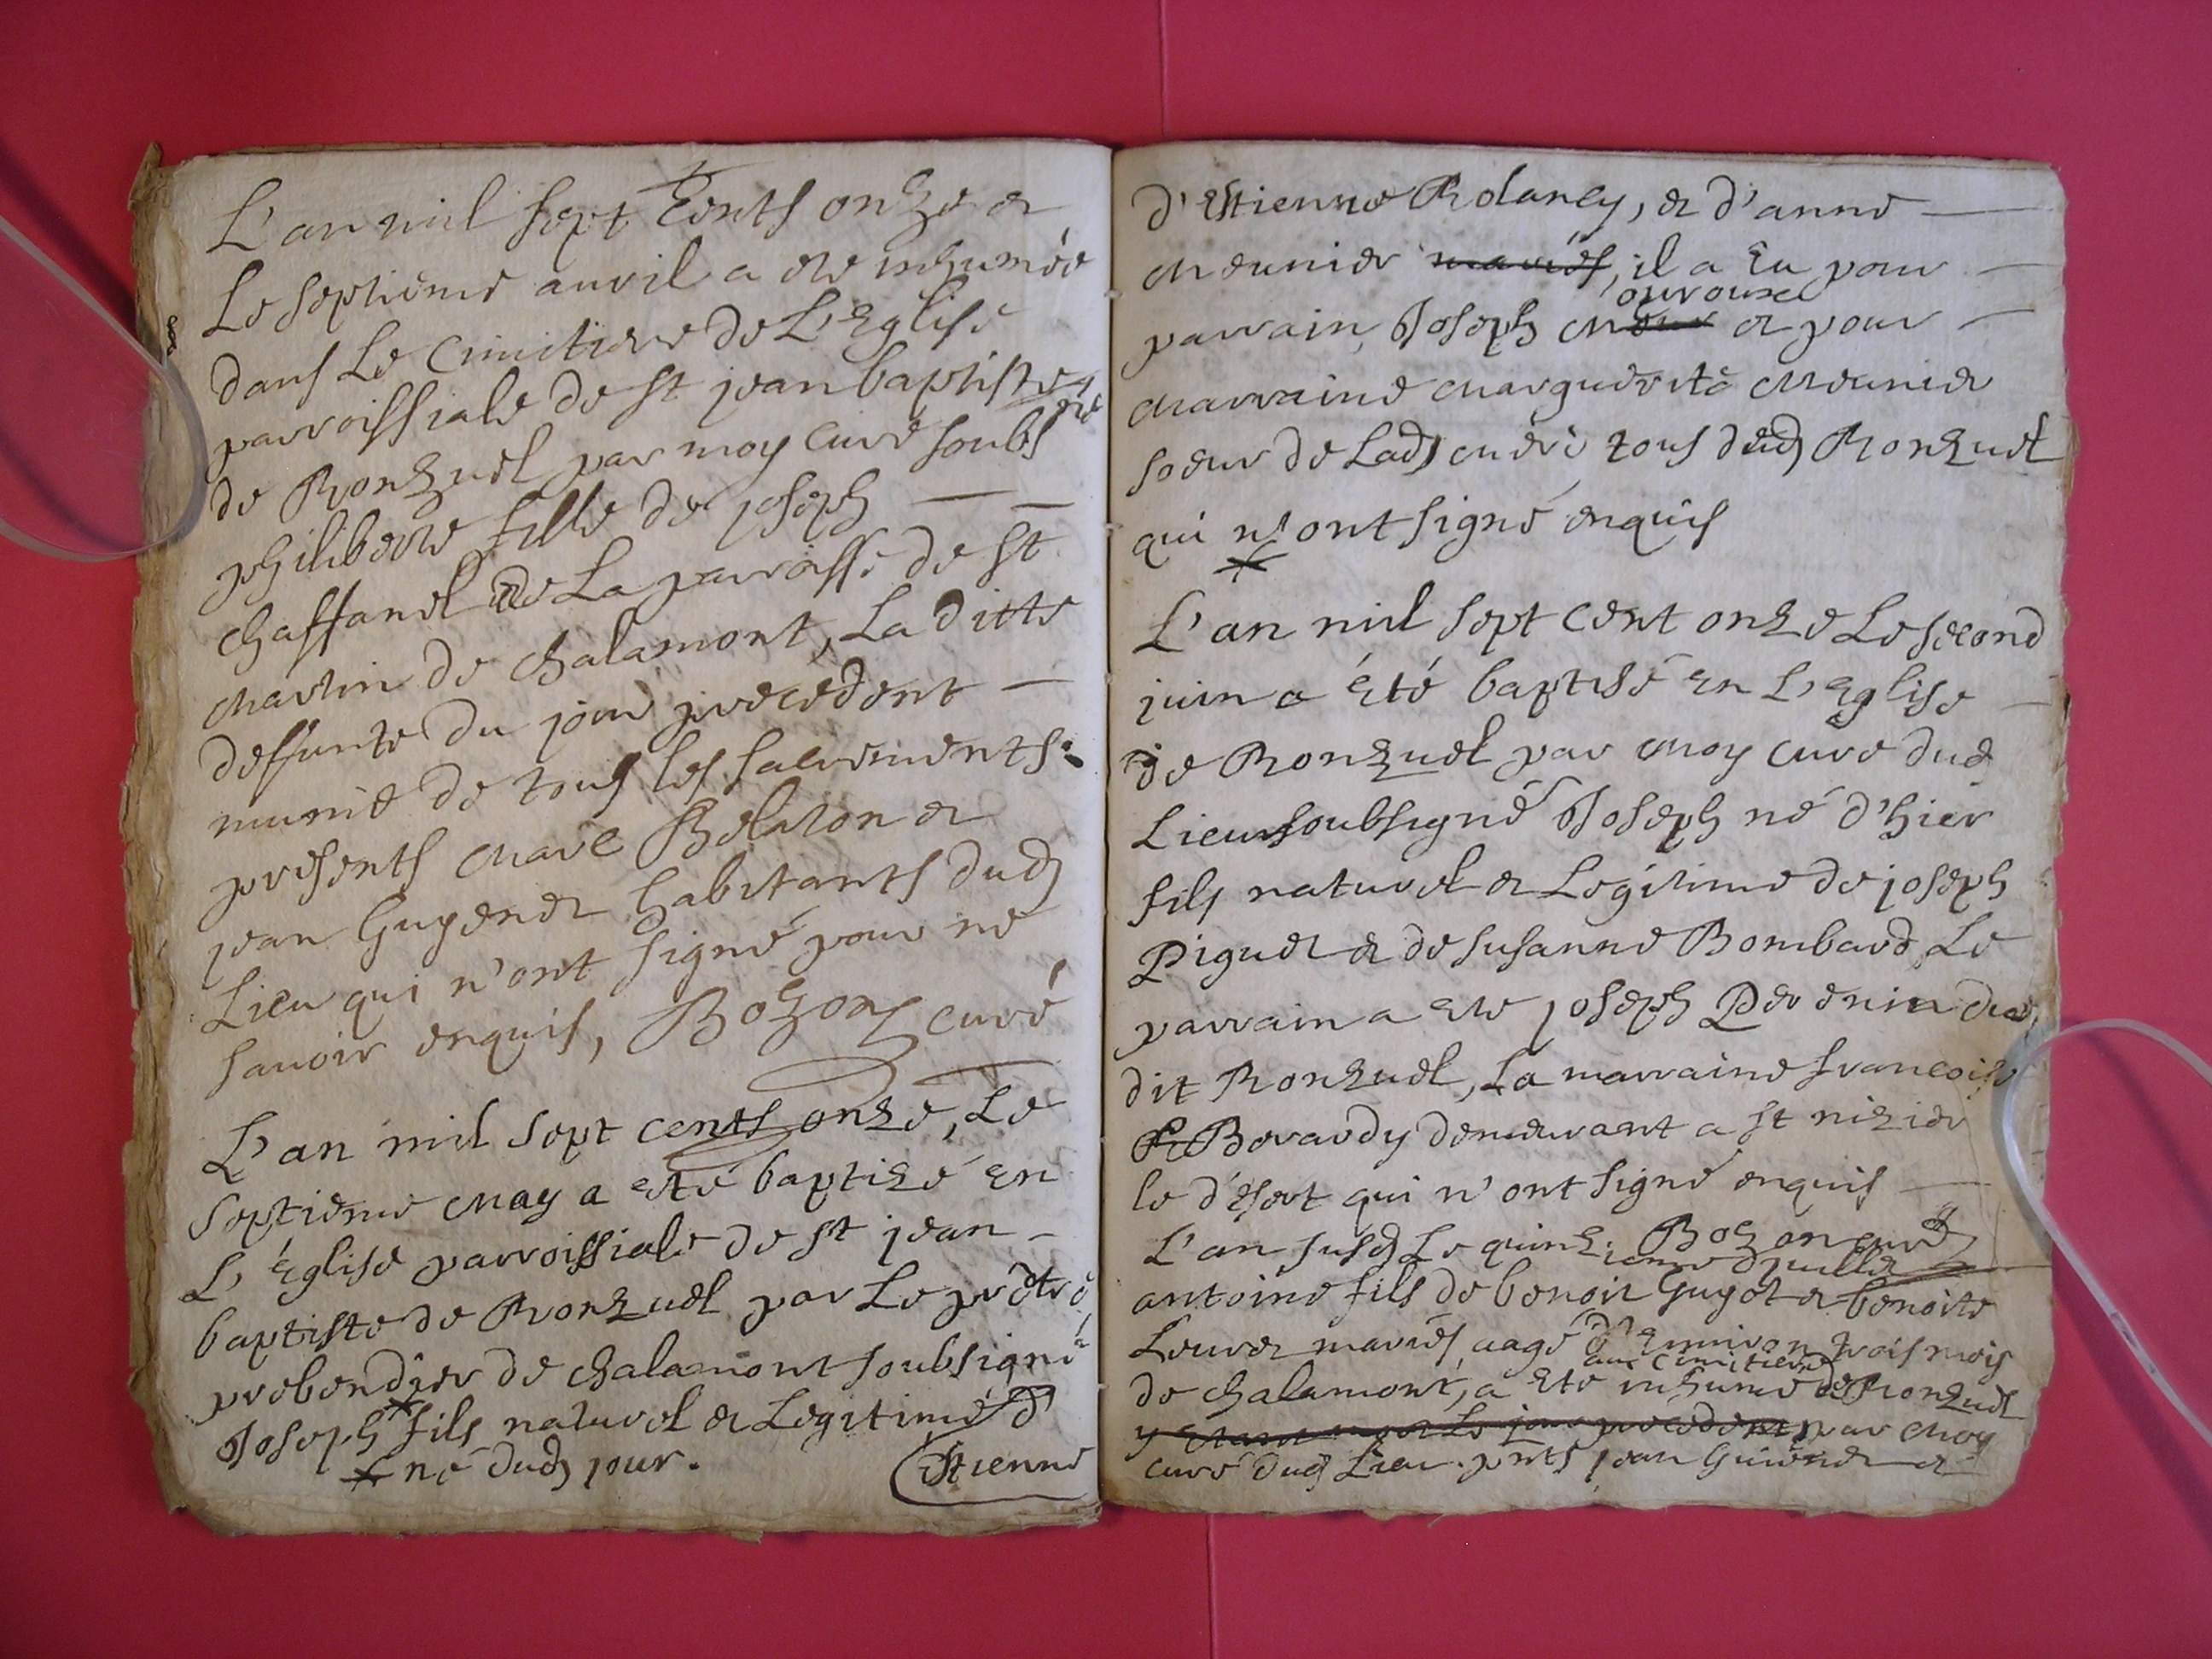 L'an mil sept cents onze et
Le septieme auril a ete inhumée
dans Le Cimitiere de L'Eglise
parroissiale de st jean baptiste
de Ronzuel par moy curé soubs né
philiberte fille de joseph
chaffanel de La parroisse de st
Martin de chalamont, La ditte
deffunte du jour precedent
munie de tous les sacrements.
presents Marc Belaton et
jean Guyenet habitants dud
Lieu qui n'ont signé pour ne
sauoir enquis, Bozon curé
L'an mil sept cents onze, Le
septieme May a eté baptizé en
L'Eglise parroissiale de st jean
baptiste de Ronzuel par Le prétre
prebendier de chalamont soubsigné
Joseph fils naturel et Legitime d'
né dud jour. Estienne
d'Estienne Rolancy, et d'anne
Meunier mariés, il a Eu pour
parrain Joseph et pour
Marraine Marguerite Meunier
soeur de Lad mere tous dud Ronzuel
qui n'ont signé enquis
L'an mil sept cent onze Le second
juin a été baptisé en L'Eglise
de Ronzuel par Moy curé dud
Lieu soubsigné Joseph né d'hier
fils naturel et Legitime de joseph
Piguet et de susanne Bombard, Le
parrain a ete joseph Perenin du
dit Ronzuel, La marraine francoise
Berardy demeurant a st nizier
le desert qui n'ont signé enquis
Bozon curé
L'an susd Le quinzieme juillet
antoine fils de benoit Guyot et benoite
mariés, aagé d'enuiron trois mois
au cimitiere
de chalamont, a eté inhumé de Ronzuel
y etant mort Le jour precedent par Moy
curé dud Lieu. pnts jean Guienet et